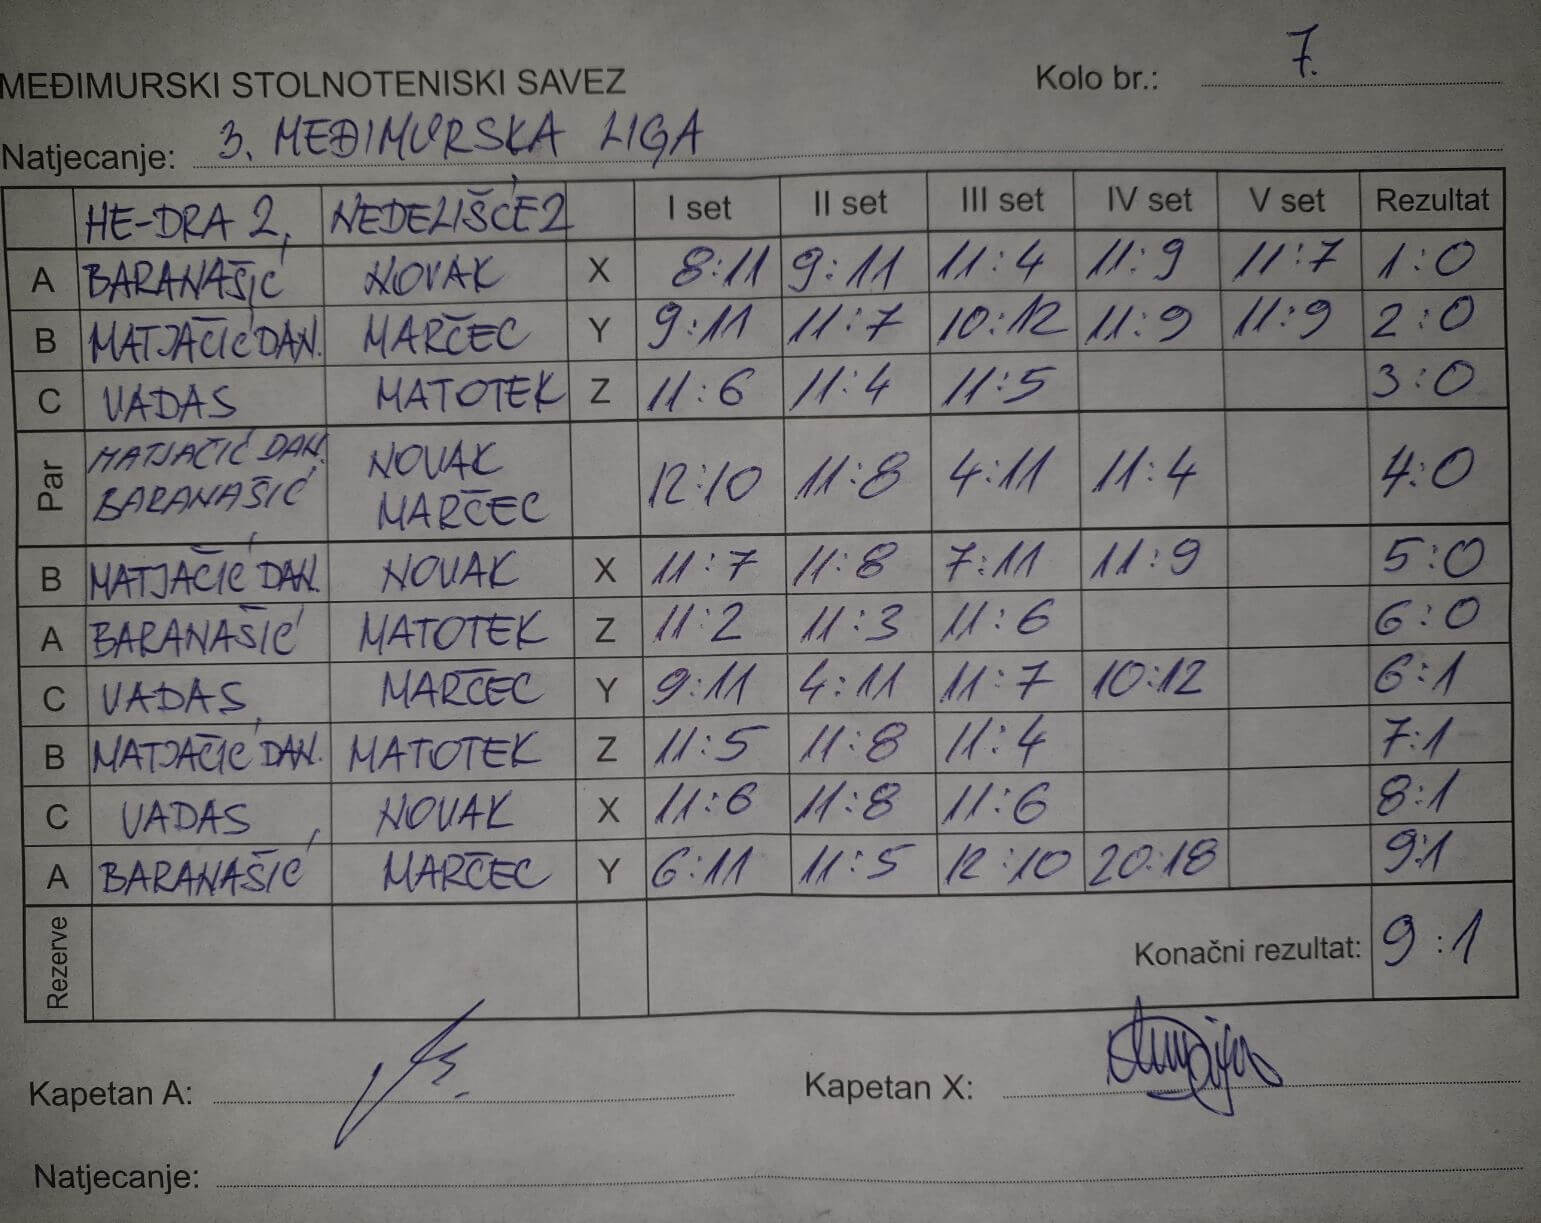 MEĐIMURSKI STOLNOTENISKI SAVEZ Kolo br.: 7.
Natjecanje: 3. MEĐIMURSKA LIGA
HE-DRA 2, NEDELIŠĆE 2 I set II set III set IV set V set Rezultat
A BARANAŠIĆ NOVAK X 8:11 9:11 11:4 11:9 11:7 1:0
B MATJAČIĆ DAN. MARČEC Y 9:11 11:7 10:12 11:9 11:9 2:0
C VADAS MATOTEK Z 11:6 11:4 11:5 3:0
Par MATJAČIĆ DAN. NOVAK 12:10 11:8 4:11 11:4 4:0
BARANAŠIĆ MARČEC
B MATJAČIĆ DAN. NOVAK X 11:7 11:8 7:11 11:9 5:0
A BARANAŠIĆ MATOTEK Z 11:2 11:3 11:6 6:0
C VADAS MARČEC Y 9:11 4:11 11:7 10:12 6:1
B MATJAČIĆ DAN. MATOTEK Z 11:5 11:8 11:4 7:1
C VADAS NOVAK X 11:6 11:8 11:6 8:1
A BARANAŠIĆ MARČEC Y 6:11 11:5 12:10 20:18 9:1
Rezerve Konačni rezultat: 9:1
Kapetan A: Kapetan X:
Natjecanje: